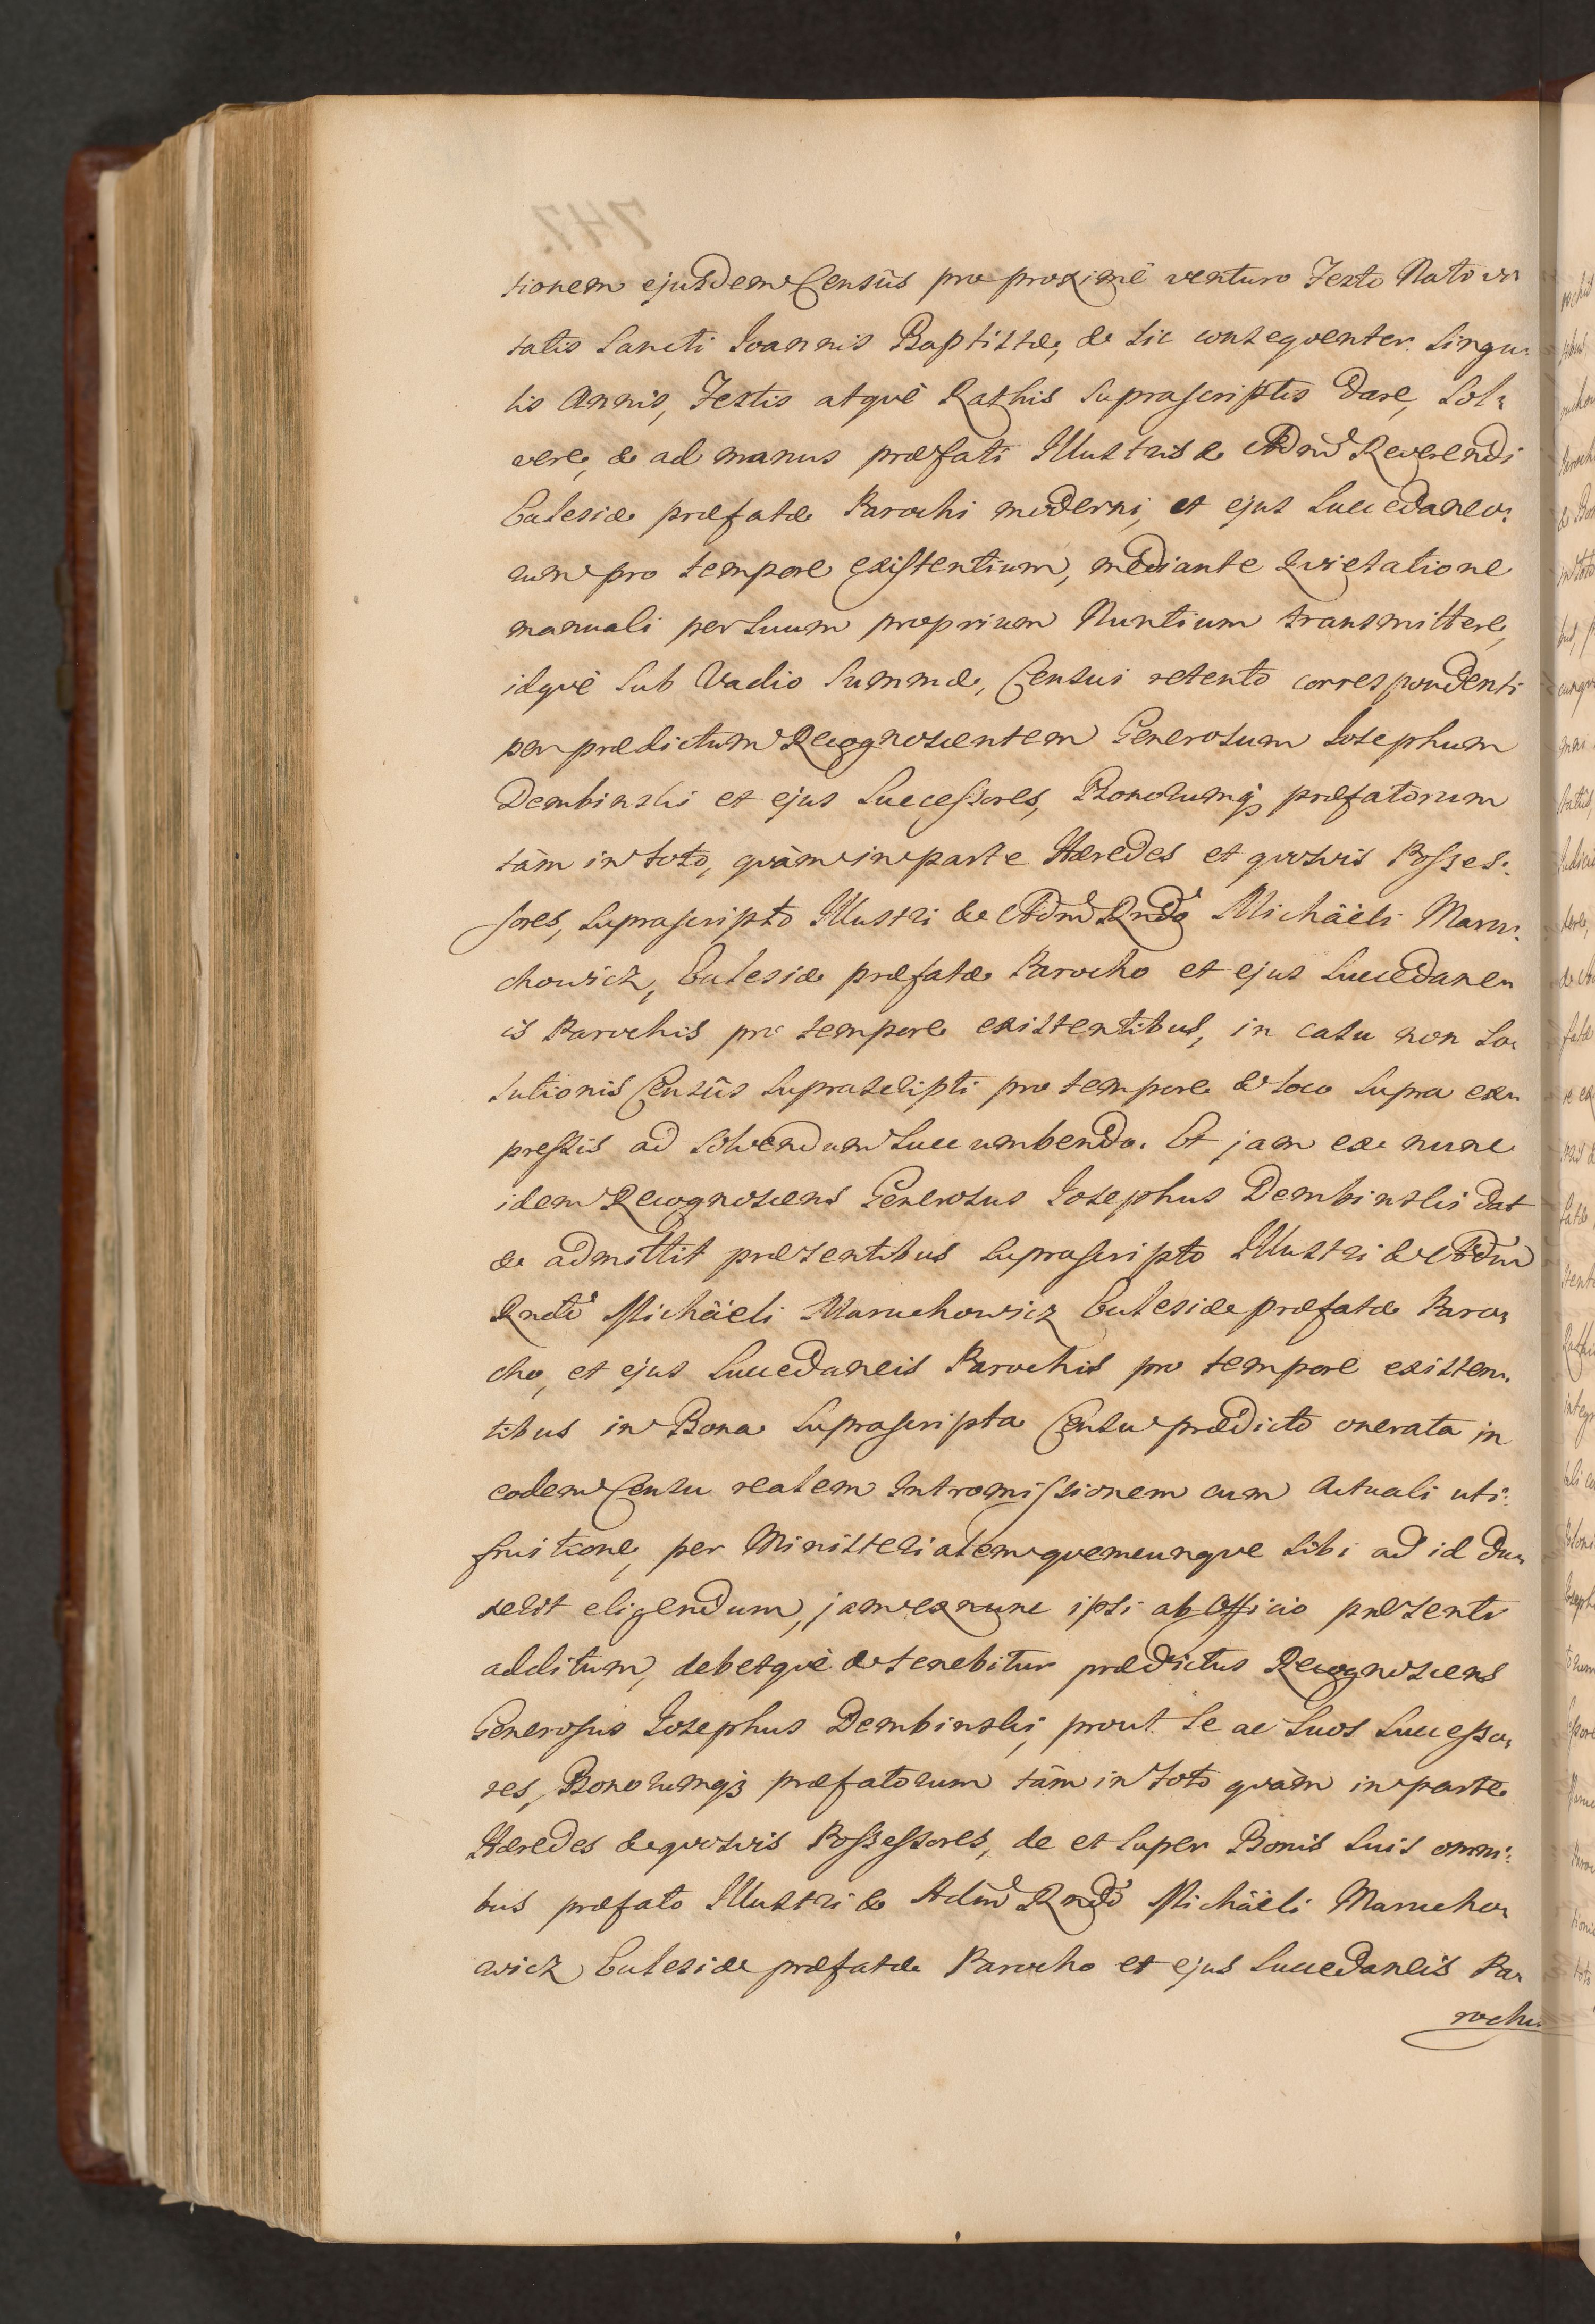 tionem ejusdem Censûs pro proximè venturo Festo Nativi:
tatis Sancti Joannis Baptistæ, & sic consequenter singu:
lis Annis, Festis atquè Rathis suprascriptis dare, sol:
vere, & ad manus præfati Illustris & Adm̃d Reverendi
Ecclesiæ præfatæ Parochi moderni, et ejus succedaneo:
rum pro tempore existentium, mediante Quietatione
manuali per suum proprium Nuntium transmittere,
idquè sub Vadio summæ, Censui retento correspondenti
per prædictum Recognoscentem Generosum Josephum
Dembinski et ejus Successores, Bonorumq; præfatorum
tàm in toto, quàm in parte Hæredes et quosvis Posses:
sores, suprascripto Illustri & Adm̃d Rñdo Michäeli Maru:
chowicz, Ecclesiæ præfatæ Parocho et ejus succedane:
is Parochis pro tempore existentibus, in casu non so:
lutionis Censûs suprascripti pro tempore & loco supra ex:
pressis ad solvendum succumbendo. Et jam ex nunc
idem Recognoscens Generosus Josephus Dembinski dat
& admittit præsentibus suprascripto Illustri & Adm̃
Rndo Michäeli Maruchowicz Ecclesiæ præfatæ Paro:
cho, et ejus succedaneis Parochis pro tempore existen:
tibus in Bona suprascripta Censu prædicto onerata in
eodem Censu realem Intromissionem cum Actuali uti:
fruitione, per Ministerialem quemcunque sibi ad id du:
xerit eligendum, jam ex nunc ipsi ab Officio præsenti
additum, debetquè & tenebitur prædictus Recognoscens
Generosus Josephus Dembinski, prout se ac suos Successo:
res, Bonorumq; præfatorum tàm in toto quàm in parte
Hæredes & quosvis Possessores, de et super Bonis suis omni:
bus præfato Illustri & Adm̃d Rñdo Michäeli Marucho:
wicz Ecclesiæ præfatæ Parocho et ejus succedaneis Pa:
rochis